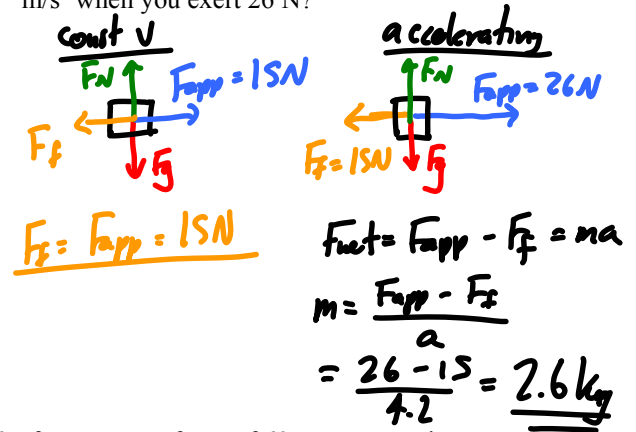 m/s when you exert 26 N?
const v
F_N
F_app = 15N
F_f
F_g
F_f = F_app = 15N
accelerating
F_N
F_app = 26N
F_f = 15N
F_g
F_net = F_app - F_f = ma
m = (F_app - F_f) / a
= (26 - 15) / 4.2 = 2.6 kg